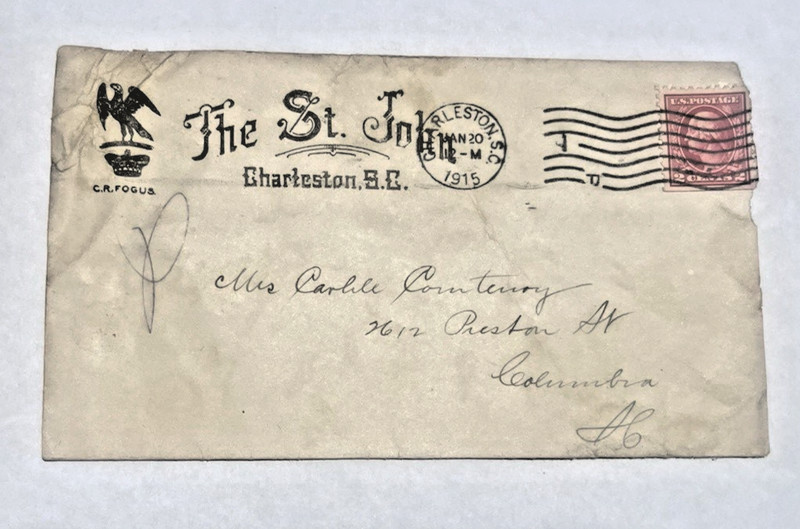 The St. John
Charleston, S.C.
C.R. FOGUS.
CHARLESTON, S.C.
JAN 20
12 - M
1915
U.S. POSTAGE
2 CENTS 2
Mrs Carlile Courtenay
2612 Preston St
Columbia
SC